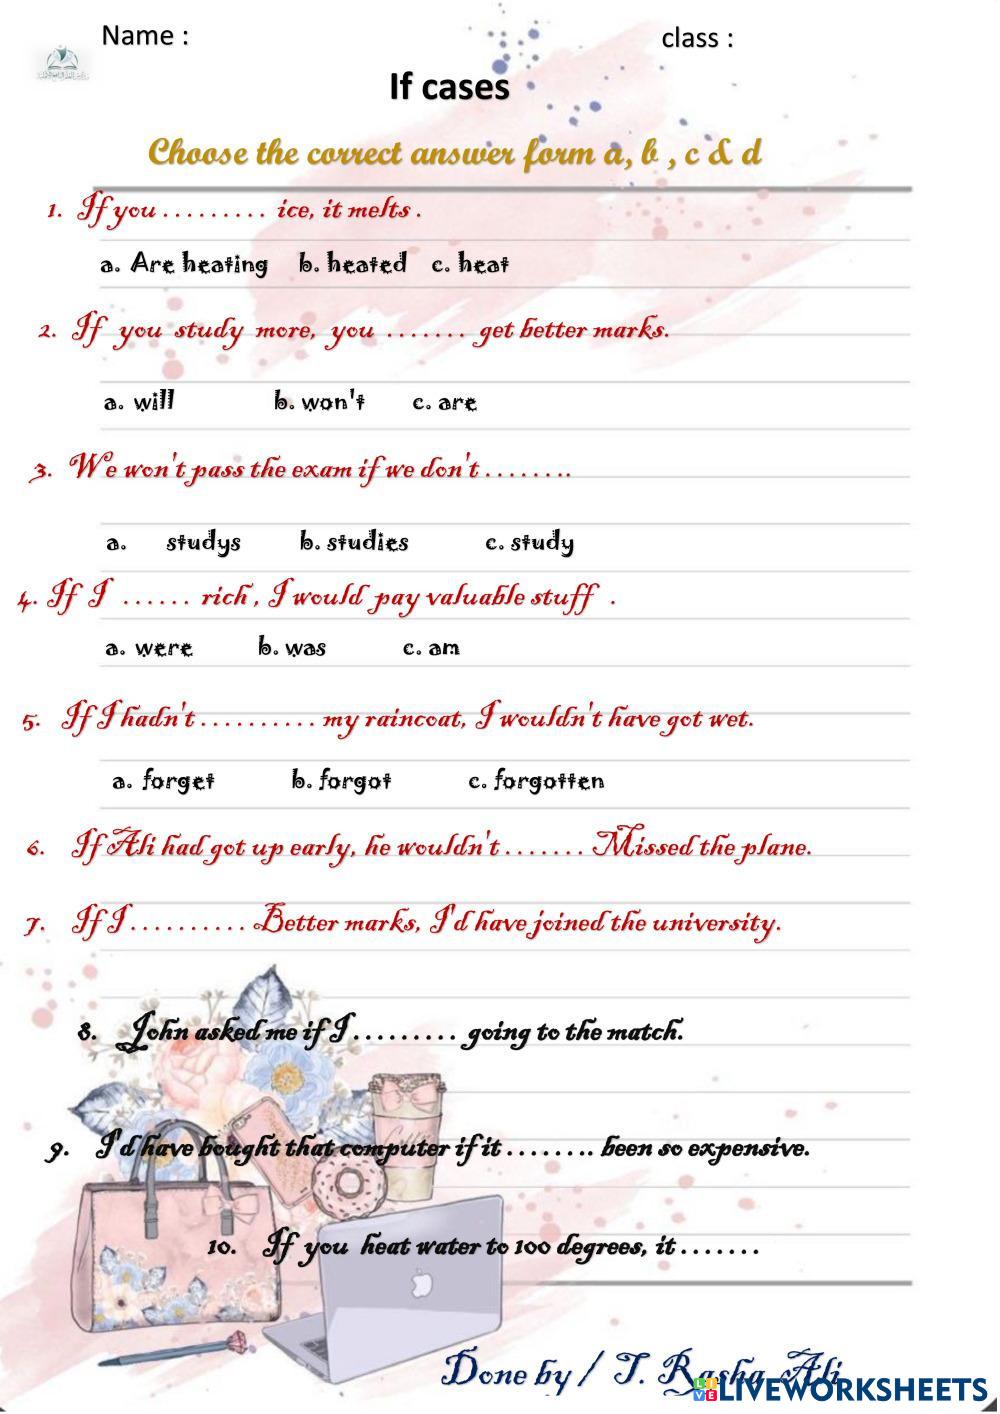 Name :
class :
If cases
Choose the correct answer form a, b , c & d
1. If you ......... ice, it melts .
a. Are heating b. heated c. heat
2. If you study more, you ....... get better marks.
a. will b. won't c. are
3. We won't pass the exam if we don't ........
a. studys b. studies c. study
4. If I ...... rich , I would pay valuable stuff .
a. were b. was c. am
5. If I hadn't .......... my raincoat, I wouldn't have got wet.
a. forget b. forgot c. forgotten
6. If Ali had got up early, he wouldn't ....... Missed the plane.
7. If I .......... Better marks, I'd have joined the university.
8. John asked me if I ......... going to the match.
9. I'd have bought that computer if it ........ been so expensive.
10. If you heat water to 100 degrees, it .......
Done by / T. Rasha Ali
LIVE LIVEWORKSHEETS